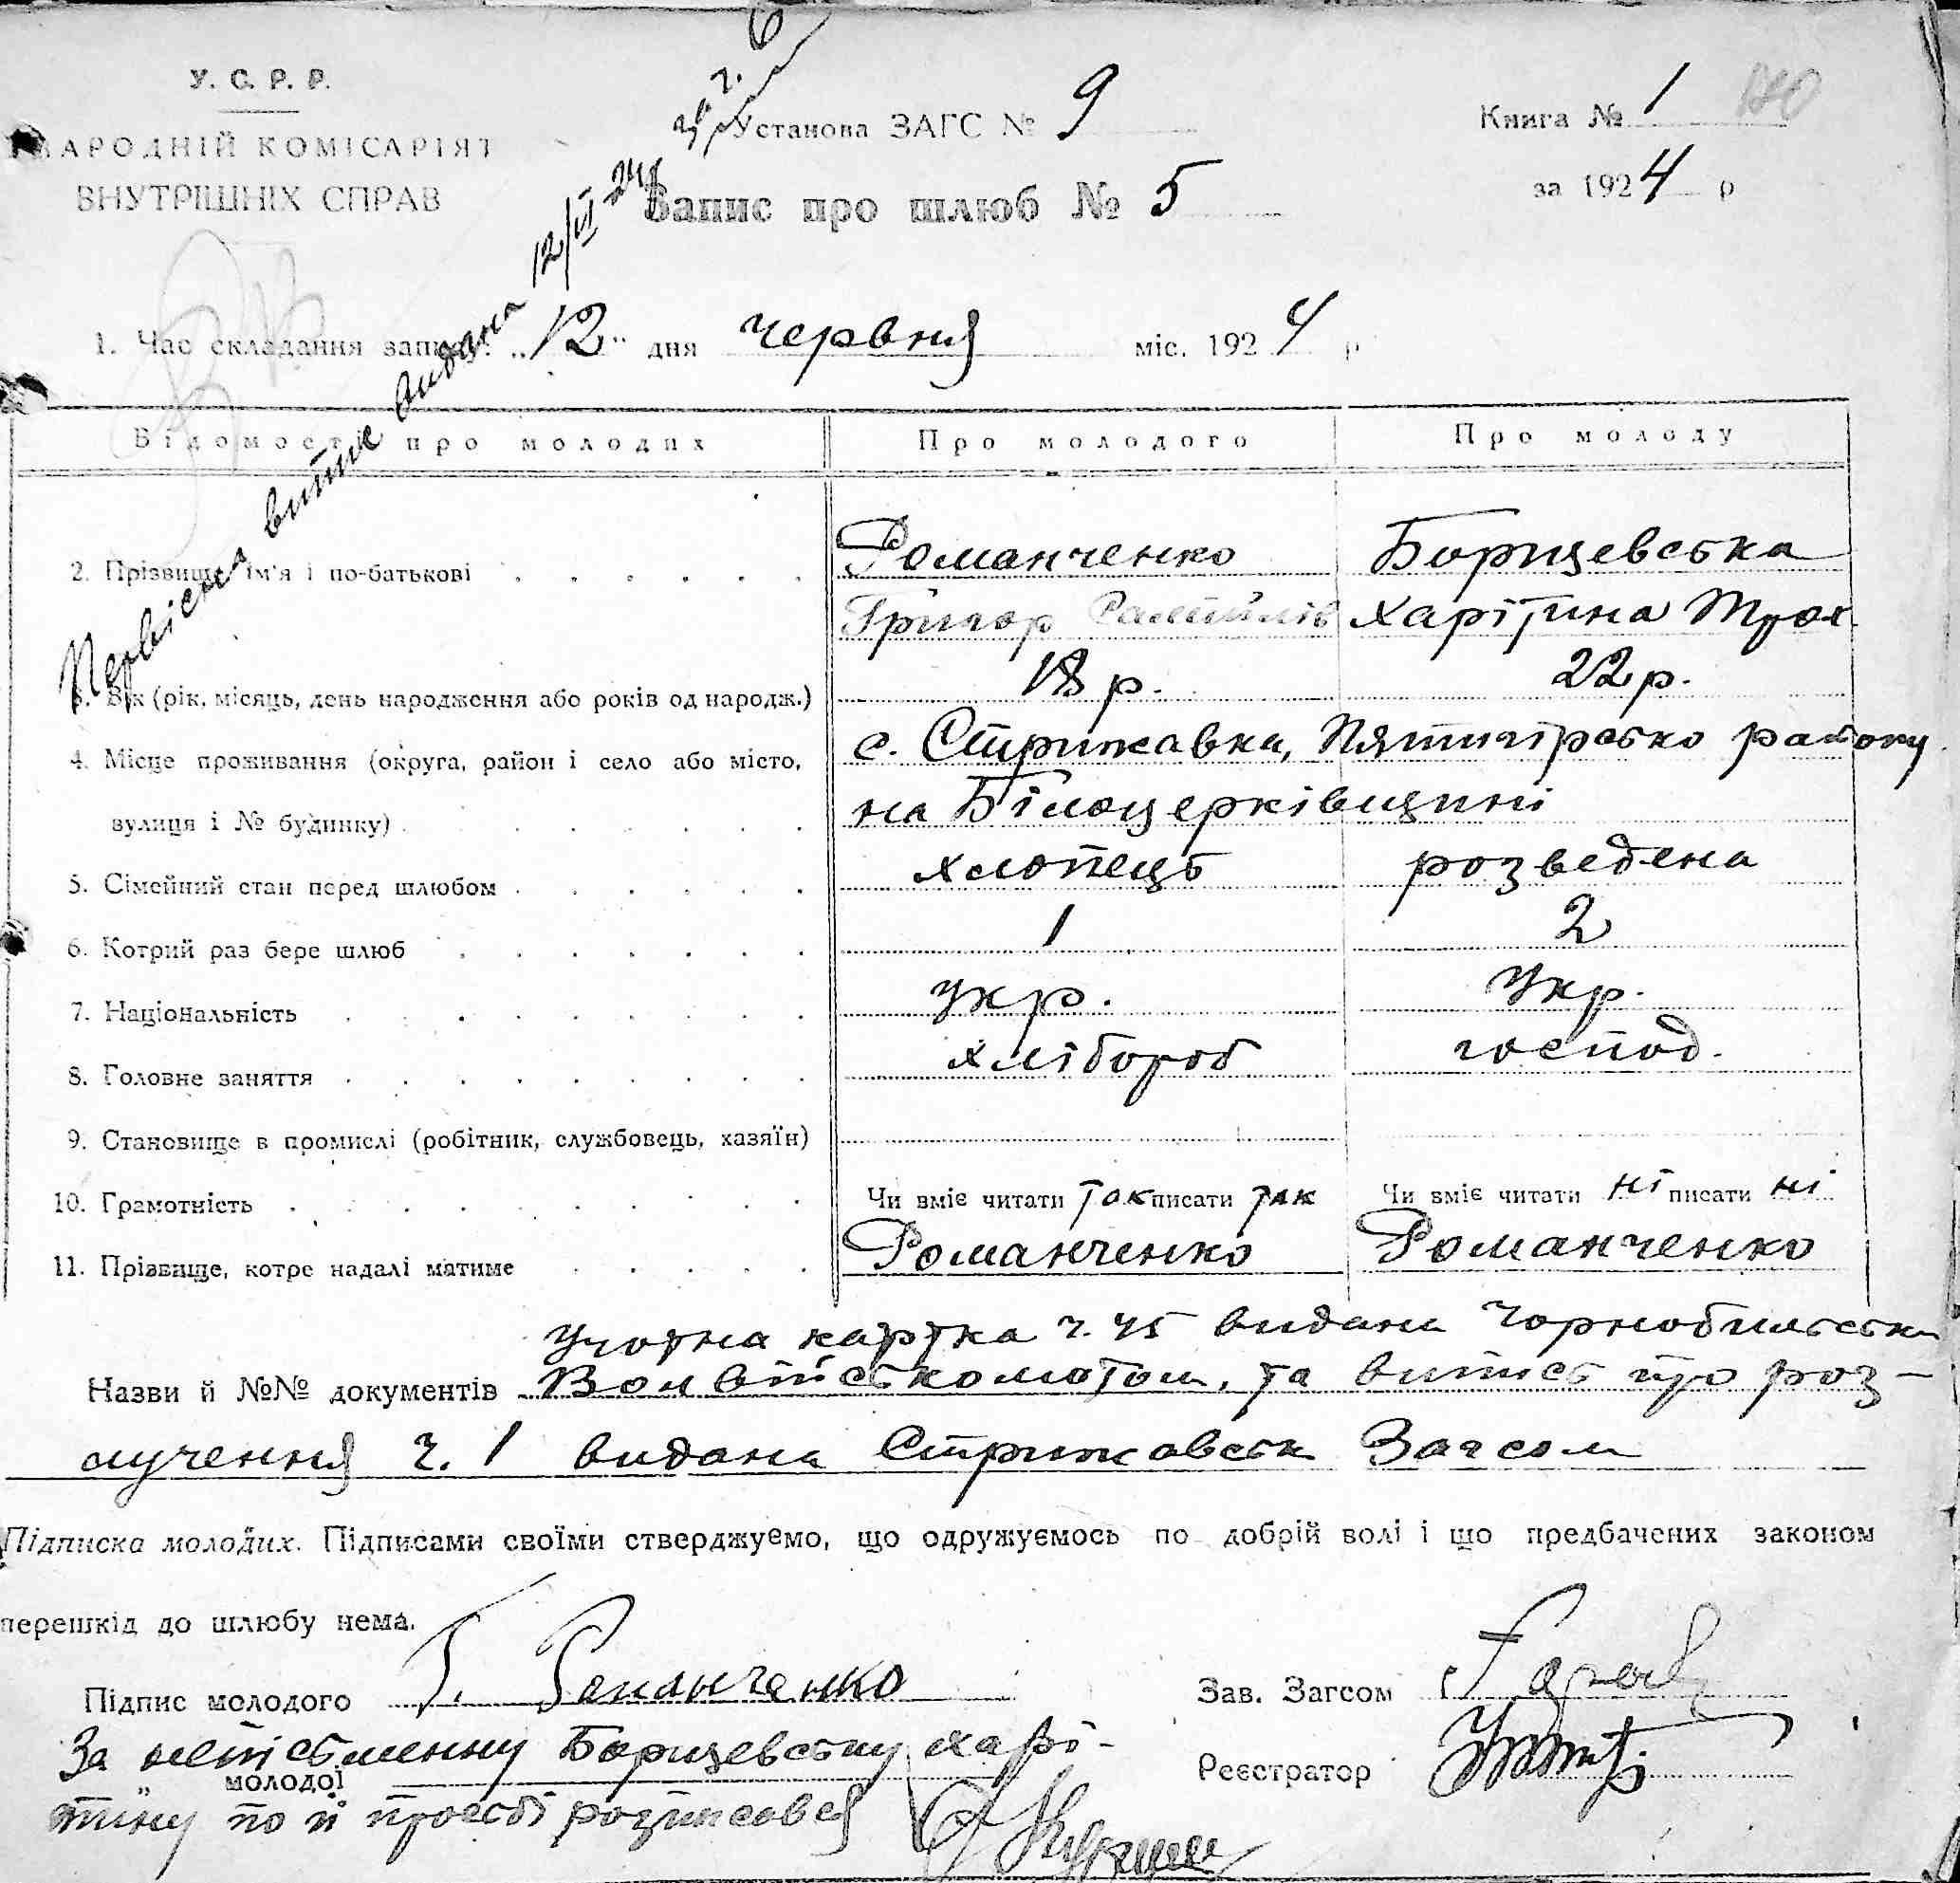 У. С. Р. Р.
НАРОДНІЙ КОМІСАРІЯТ
ВНУТРІШНІХ СПРАВ
Установа ЗАГС № 9
Запис про шлюб № 5
Книга № 1
за 1924 р
Первісна витис видана 12/VI 24 за ч. 6
1. Час складання запису: „12" дня червня міс. 1924 р
Відомості про молодих Про молодого Про молоду
2. Прізвище, ім'я і по-батькові Романченко Борщевська
Григор Харітина Трох.
3. Вік (рік, місяць, день народження або років од народж.) 18 р. 22 р.
4. Місце проживання (округа, район і село або місто, с. Стрижавка, Пятигірсько району
вулиця і № будинку) на Білоцерківщині
5. Сімейний стан перед шлюбом хлопець розведена
6. Котрий раз бере шлюб 1 2
7. Національність укр. Укр.
8. Головне заняття хлібороб господ.
9. Становище в промислі (робітник, службовець, хазяїн)
10. Грамотність Чи вміє читати так писати так Чи вміє читати ні писати ні
11. Прізвище, котре надалі матиме Романченко Романченко
Учотна картка ч. 45 видана Чорнобильськи
Назви й №№ документів Волвійськоматом, та витись про роз-
лучення ч. 1 видана Стрижавськ Загсом
Підписка молодих. Підписами своїми стверджуємо, що одружуємось по добрій волі і що предбачених законом
перешкід до шлюбу нема.
Підпис молодого Г. Романченко
Зав. Загсом
За неписьменну Борщевську Харі-
„ молодої
тину по її прозбі розписався
Реєстратор